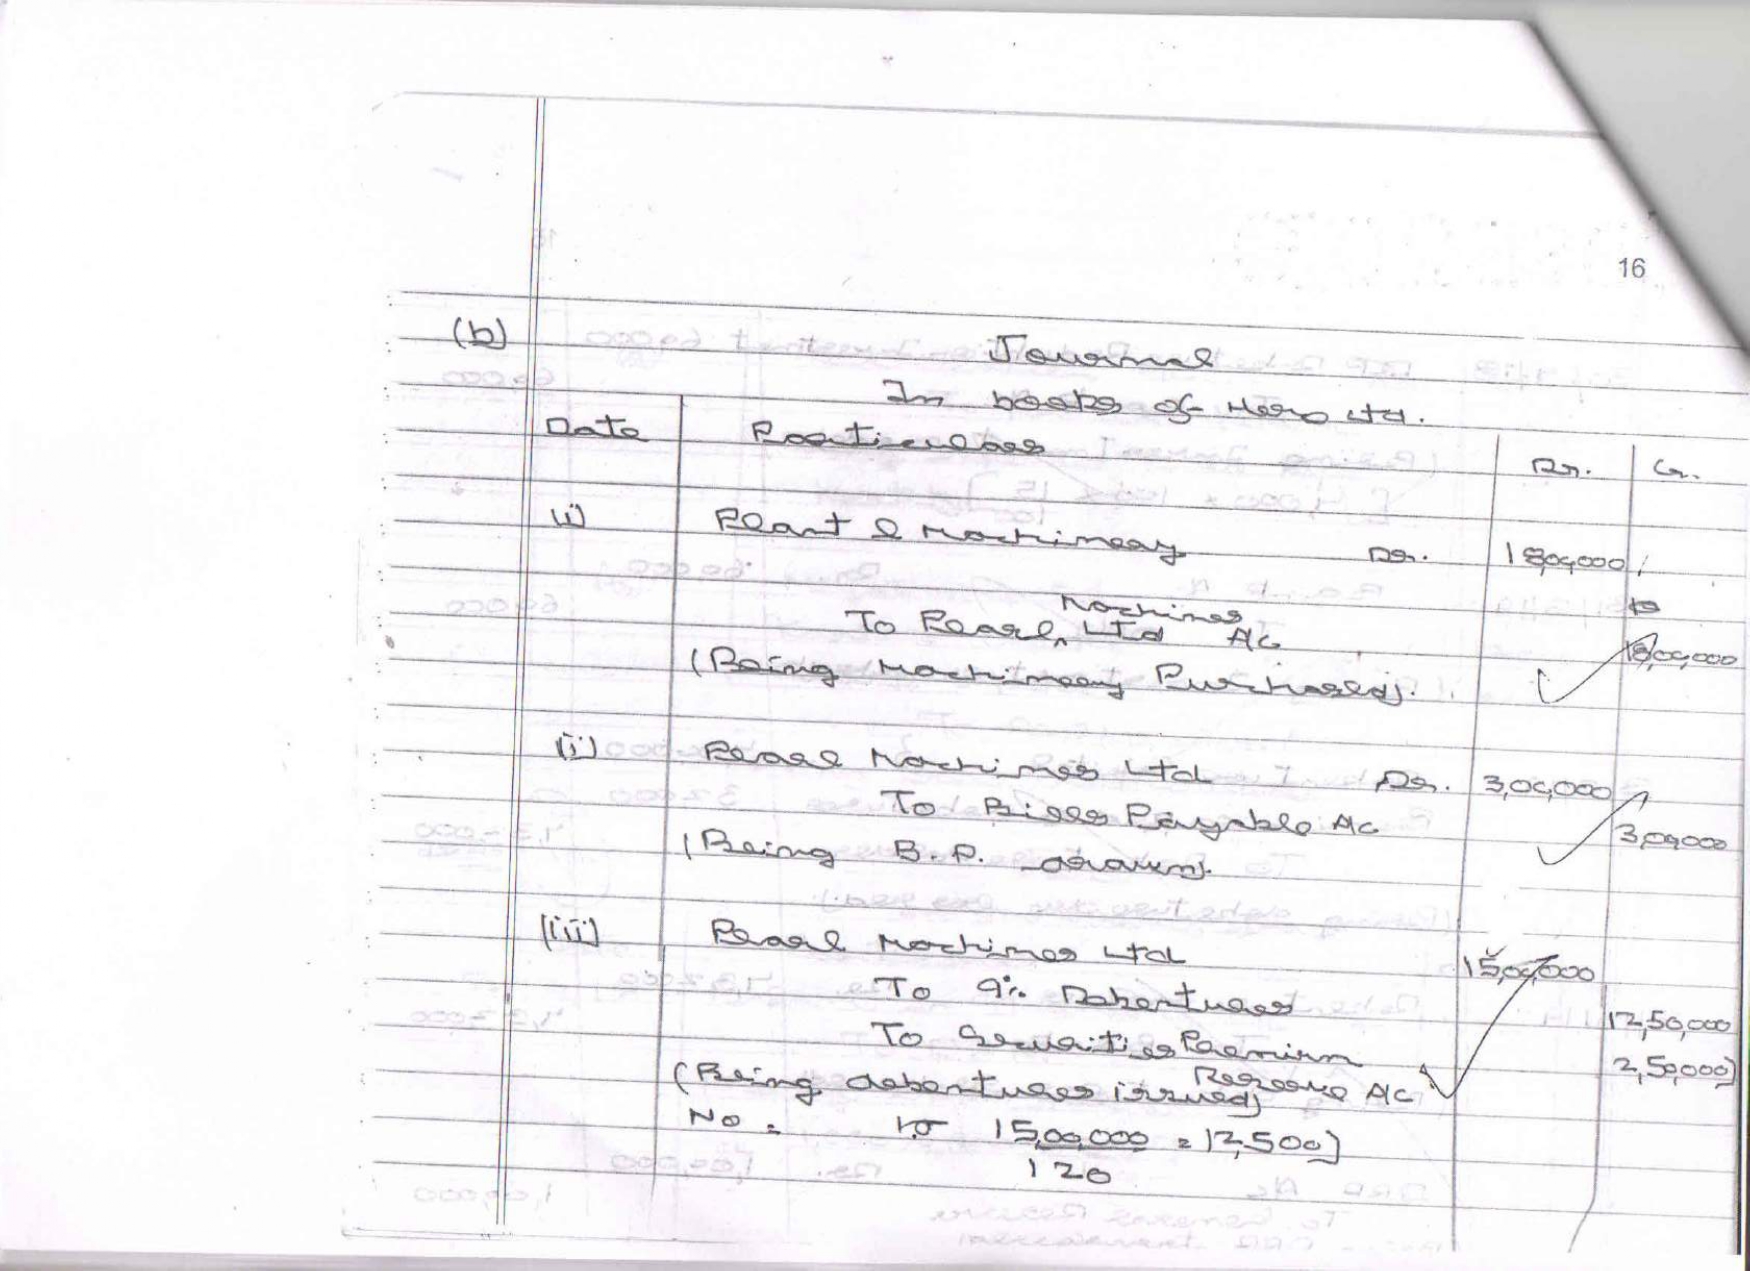 16
(b) Journal
In books of Hero Ltd.
Date Particulars Dr. Cr.
(i) Plant & Machinery Dr. 18,00,000
To Pearl Machines Ltd A/c 18,00,000
(Being Machinery Purchased).
(ii) Pearl Machines Ltd Dr. 3,00,000
To Bills Payable A/c 3,00,000
(Being B.P. drawn).
(iii) Pearl Machines Ltd 15,00,000
To 9% Debentures 12,50,000
To Securities Premium Reserve A/c 2,50,000
(Being debentures issued)
No = 15,00,000 = 12,500]
120